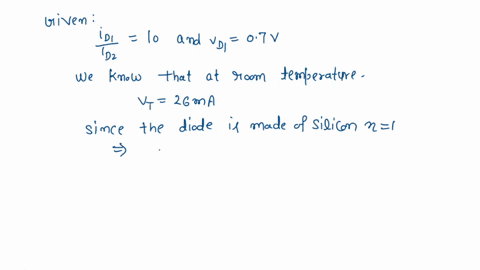 Given:
i_D1 / i_D2 = 10 and v_D1 = 0.7 V
we know that at room temperature.
V_T = 26 mA
since the diode is made of silicon n=1
⇒